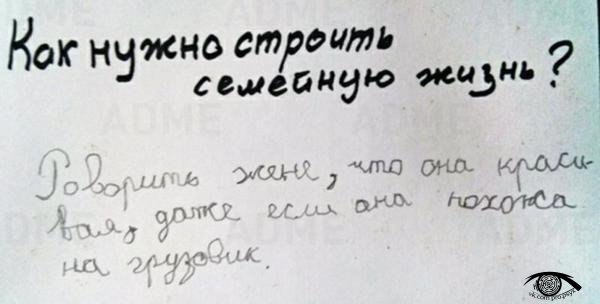 Как нужно строить
семейную жизнь?
Говорить жене, что она краси-
вая, даже если она похожа
на грузовик.
ADME
ADME
ADME
ADME
ADME
vk.com/pro.psyx